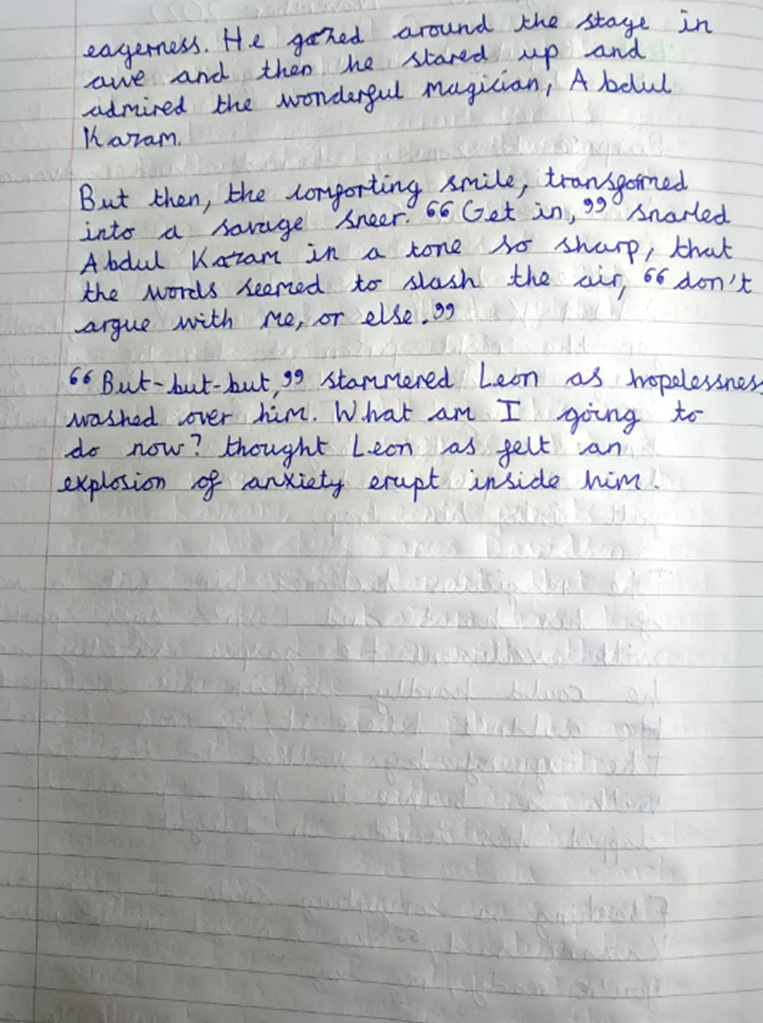 eagerness. He gazed around the stage in
awe and then he stared up and
admired the wonderful magician, Abdul
Kazam.
But then, the comforting smile, transformed
into a savage sneer. “Get in,” snarled
Abdul Kazam in a tone so sharp, that
the words seemed to slash the air, “don't
argue with me, or else.”
“But-but-but,” stammered Leon as hopelessness
washed over him. What am I going to
do now? thought Leon as felt an
explosion of anxiety erupt inside him.